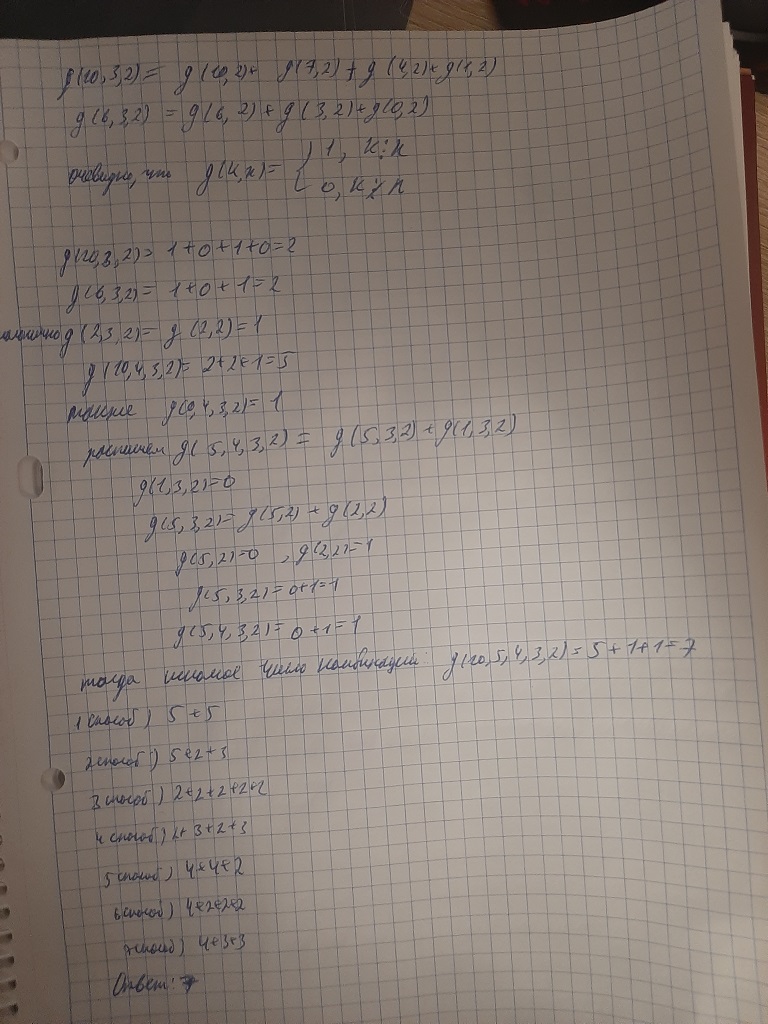 g(10,3,2) = g(10,2)+ g(7,2) + g(4,2)+g(1,2)
g(6,3,2) = g(6,2) + g(3,2)+g(0,2)
очевидно, что g(k,n) = { 1, k⋮n
0, k⋮̸n
g(10,3,2) = 1+0+1+0=2
g(6,3,2) = 1+0+1=2
g(2,3,2) = g(2,2)=1
g(10,4,3,2) = 2+2+1=5
также g(0,4,3,2) = 1
распишем g(5,4,3,2) = g(5,3,2) + g(1,3,2)
g(1,3,2)=0
g(5,3,2) = g(5,2) + g(2,2)
g(5,2)=0 , g(2,2)=1
g(5,3,2) = 0+1=1
g(5,4,3,2) = 0+1=1
тогда искомое число комбинаций: g(10,5,4,3,2) = 5+1+1=7
1 способ) 5+5
2 способ) 5+2+3
3 способ) 2+2+2+2+2
4 способ) 2+3+2+3
5 способ) 4+4+2
6 способ) 4+2+2+2
7 способ) 4+3+3
Ответ: 7